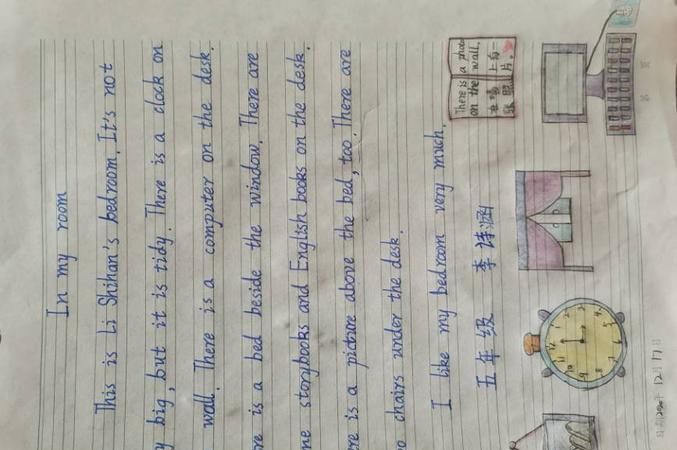 In my room
This is Li Shihan's bedroom. It's not
big, but it is tidy. There is a clock on
wall. There is a computer on the desk.
is a bed beside the window. There are
storybooks and English books on the desk.
is a picture above the bed, too. There are
chairs under the desk.
I like my bedroom very much.
五年级 李诗涵
There is a photo
on the wall.
在墙上有一
张照片。
12月17日